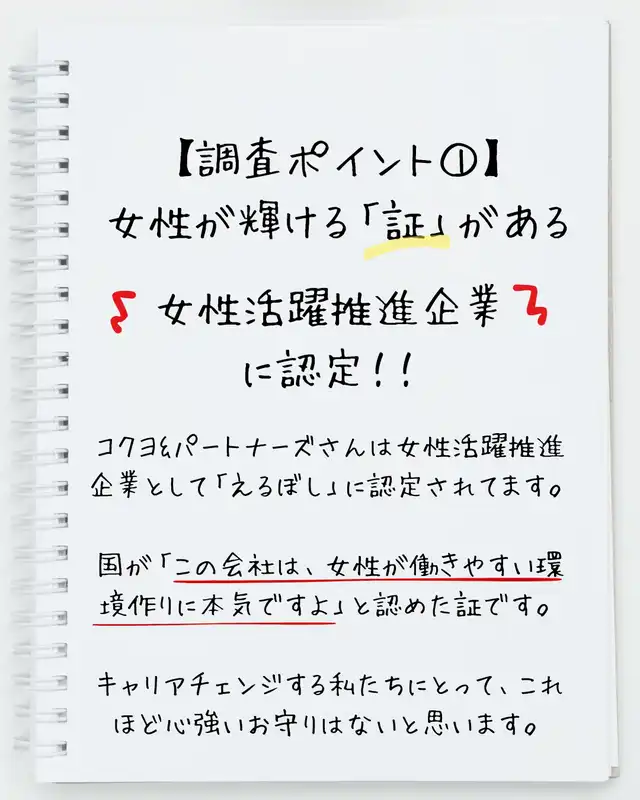 【調査ポイント①】
女性が輝ける「証」がある
女性活躍推進企業
に認定！！
コクヨ&パートナーズさんは女性活躍推進
企業として「えるぼし」に認定されてます。
国が「この会社は、女性が働きやすい環
境作りに本気ですよ」と認めた証です。
キャリアチェンジする私たちにとって、これ
ほど心強いお守りはないと思います。